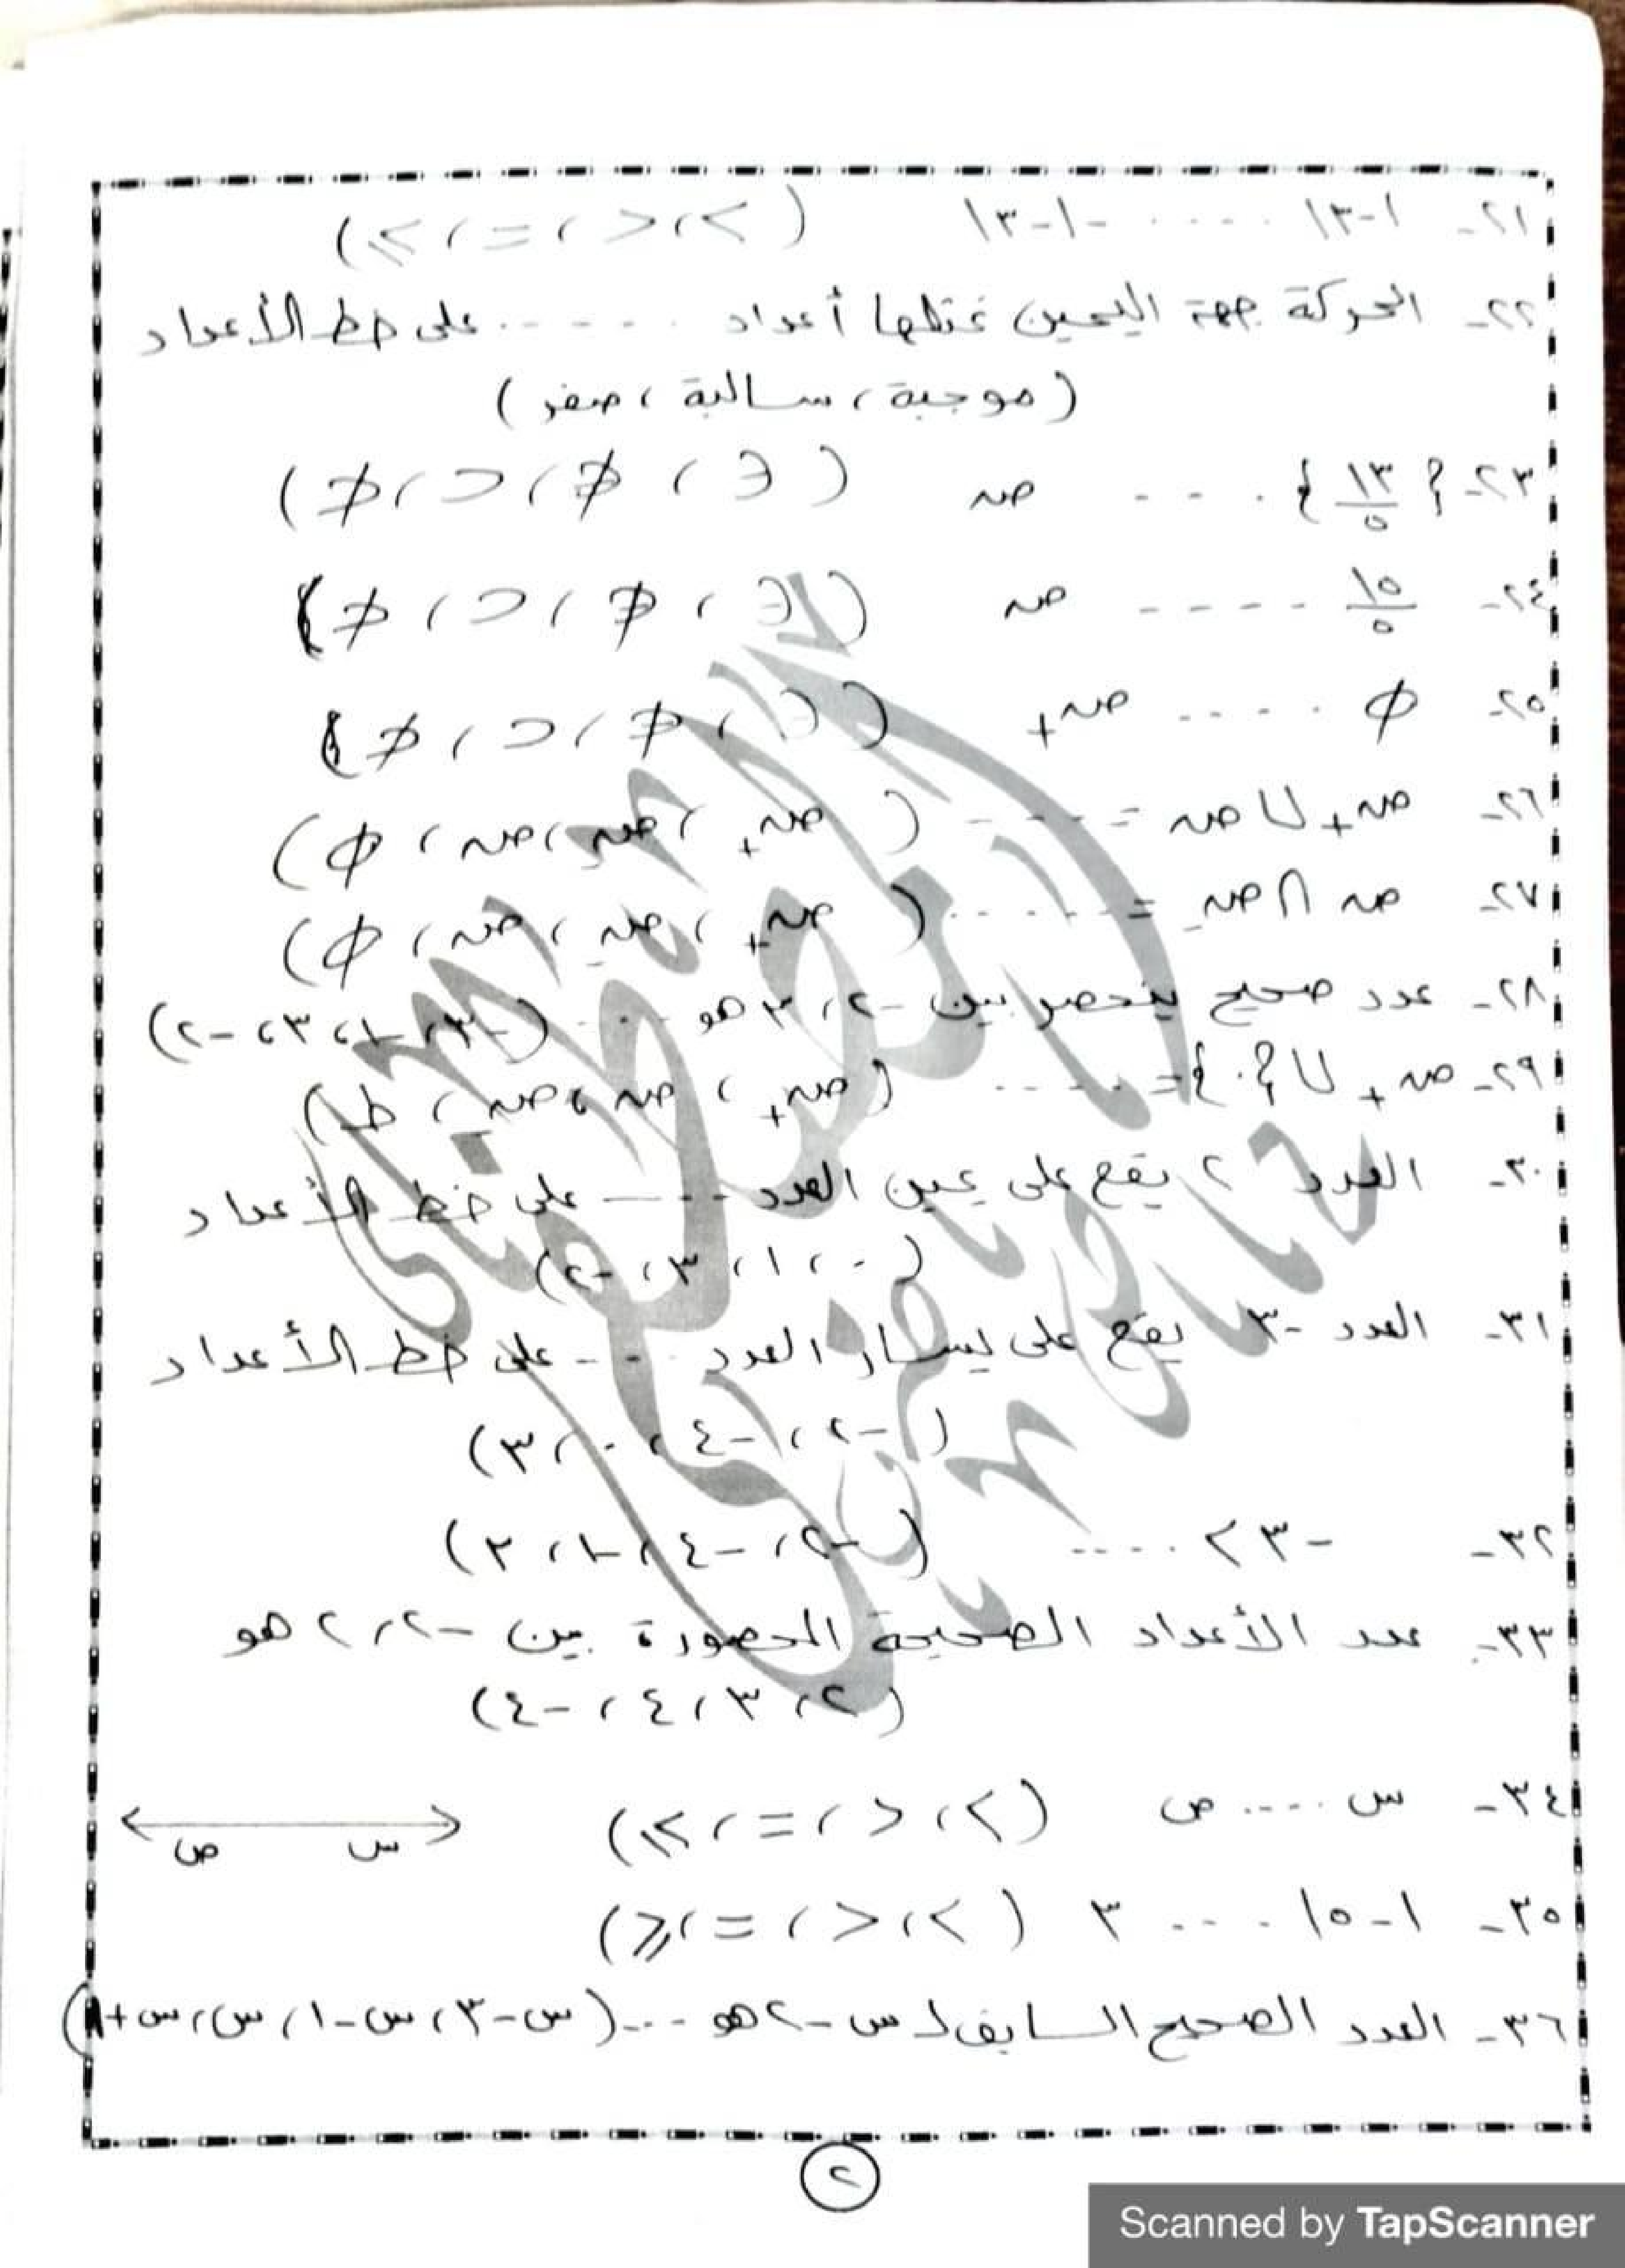 ٢١- |-٣| ..... -|-٣| (> ، < ، = ، ≥)
٢٢- الحركة جهة اليمين تمثلها أعداد ..... على خط الأعداد
(موجبة ، سالبة ، صفر)
٢٣- {١٣/٥} .... صـ (∋ ، ∌ ، ⊃ ، ⊅)
٢٤- ١٥/٥ ..... صـ (∋ ، ∌ ، ⊃ ، ⊅)
٢٥- ∅ ..... صـ+ (∋ ، ∌ ، ⊃ ، ⊅)
٢٦- صـ+ ∪ صـ = ..... (صـ+ ، صـ- ، صـ ، ∅)
٢٧- صـ ∩ صـ- = ..... (صـ+ ، صـ- ، صـ ، ∅)
٢٨- عدد صحيح ينحصر بين -٢ ، ٣ هو .... (-٣ ، -١ ، ٣ ، -٢)
٢٩- صـ+ ∪ {٠} = ..... (صـ+ ، صـ ، صـ- ، ط)
٣٠- العدد ٢ يقع على يمين العدد ..... على خط الأعداد
(٠ ، ١ ، ٣ ، -٢)
٣١- العدد -٣ يقع على يسار العدد .... على خط الأعداد
(-٢ ، -٤ ، ٠ ، ٣)
٣٢- -٣ < ..... (-٢ ، -٤ ، -١ ، ٢)
٣٣- عدد الأعداد الصحيحة المحصورة بين -٢ ، ٢ هو
(٢ ، ٣ ، ٤ ، -٤)
٣٤- س ..... ص (> ، < ، = ، ≥) ص س
٣٥- |-٥| ..... ٣ (> ، < ، = ، ≤)
٣٦- العدد الصحيح السابق لـ س - ٢ هو ... (س-٣ ، س-١ ، س ، س+١)
٢
Scanned by TapScanner